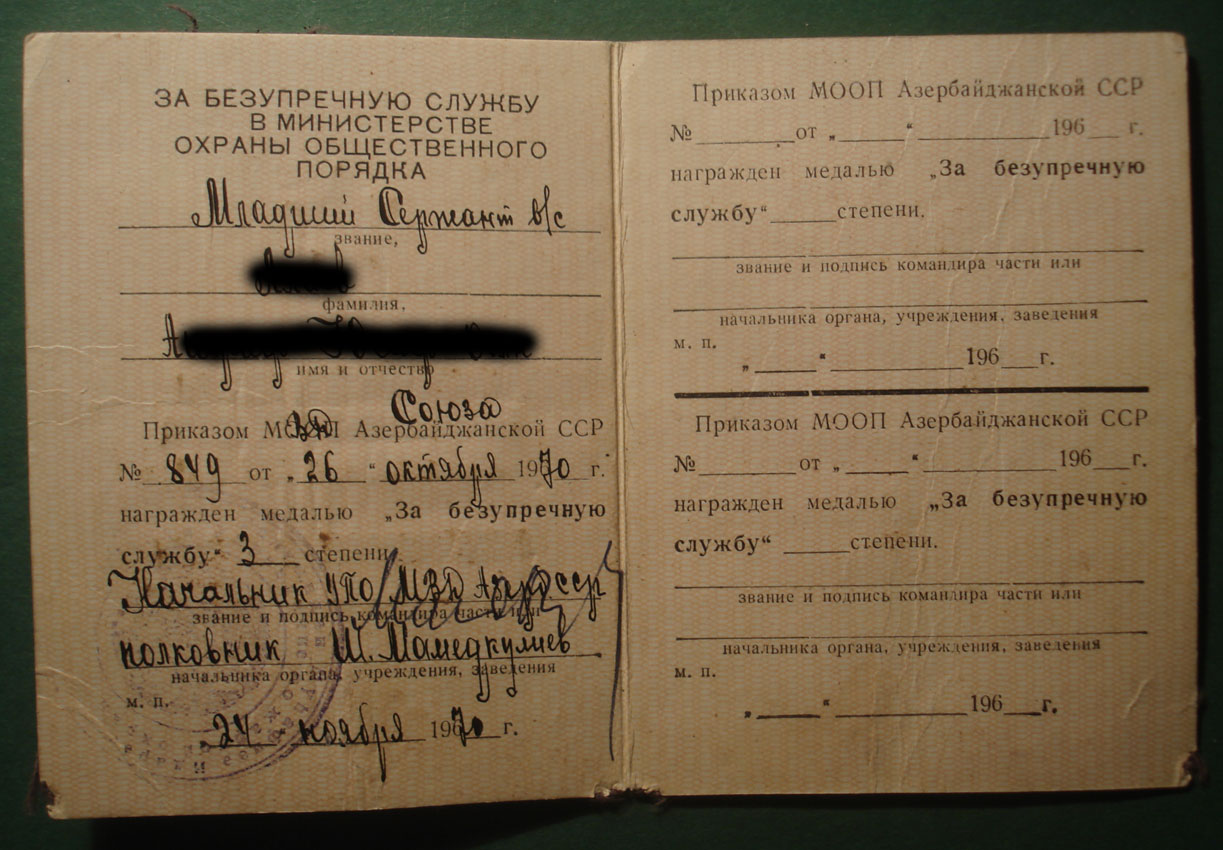 ЗА БЕЗУПРЕЧНУЮ СЛУЖБУ
В МИНИСТЕРСТВЕ
ОХРАНЫ ОБЩЕСТВЕННОГО
ПОРЯДКА
Младший Сержант в/с
звание,
фамилия,
имя и отчество
Союза
Приказом МВД Азербайджанской ССР
№ 849 от „26“ октября 1970 г.
награжден медалью „За безупречную
службу“ 3 степени
Начальник УПО МВД Азерб ССР
звание и подпись командира части или
полковник Ш. Мамедкулиев
начальника органа, учреждения, заведения
м. п.
„24“ ноября 1970 г.
Приказом МООП Азербайджанской ССР
№ ______ от „______“ ______ 196__ г.
награжден медалью „За безупречную
службу“ ______ степени.
звание и подпись командира части или
начальника органа, учреждения, заведения
м. п.
„______“ ______ 196__ г.
Приказом МООП Азербайджанской ССР
№ ______ от „______“ ______ 196__ г.
награжден медалью „За безупречную
службу“ ______ степени.
звание и подпись командира части или
начальника органа, учреждения, заведения
м. п.
„______“ ______ 196__ г.